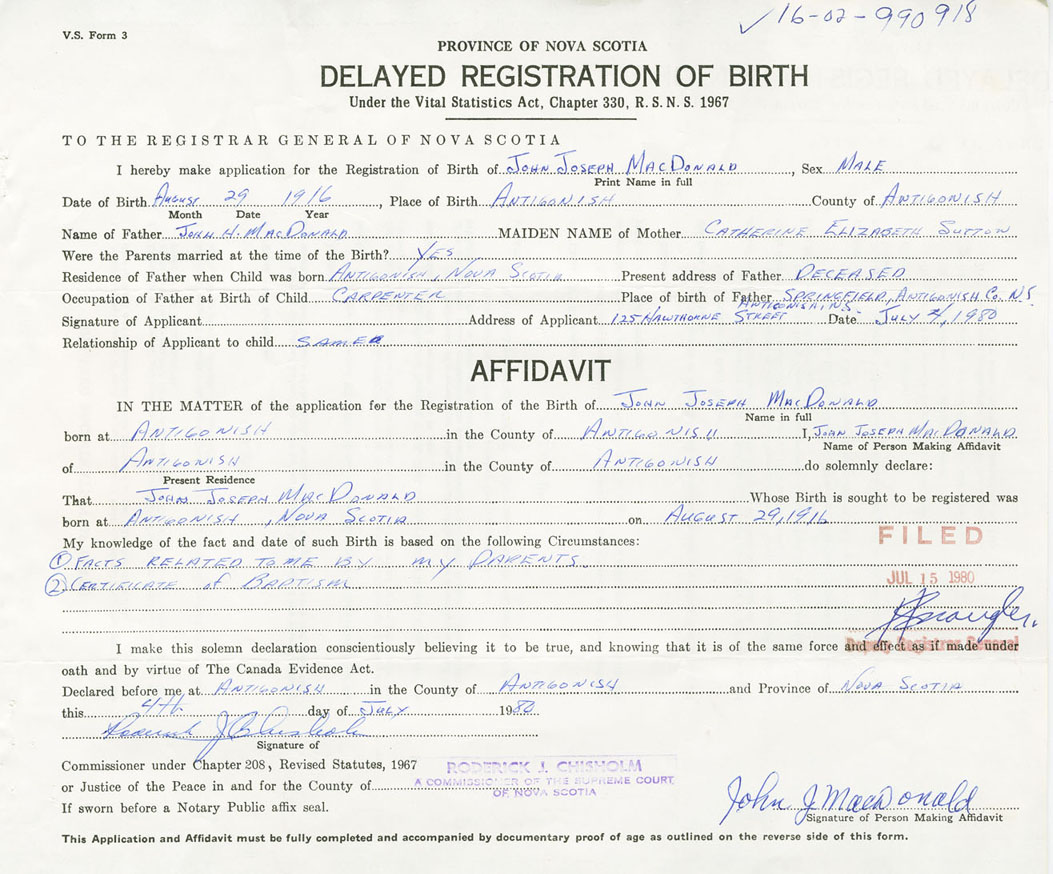 ✓16-02-990918
V.S. Form 3
PROVINCE OF NOVA SCOTIA
DELAYED REGISTRATION OF BIRTH
Under the Vital Statistics Act, Chapter 330, R.S.N.S. 1967
TO THE REGISTRAR GENERAL OF NOVA SCOTIA
I hereby make application for the Registration of Birth of John Joseph MacDonald, Sex Male
Print Name in full
Date of Birth August 29 1916, Place of Birth Antigonish County of Antigonish
Month Date Year
Name of Father John H. MacDonald MAIDEN NAME of Mother Catherine Elizabeth Sutton
Were the Parents married at the time of the Birth? Yes
Residence of Father when Child was born Antigonish, Nova Scotia Present address of Father Deceased
Occupation of Father at Birth of Child Carpenter Place of birth of Father Springfield, Antigonish Co. N.S.
Antigonish, N.S.
Signature of Applicant Address of Applicant 125 Hawthorne Street Date July 4, 1980
Relationship of Applicant to child Same
AFFIDAVIT
IN THE MATTER of the application for the Registration of the Birth of John Joseph MacDonald
Name in full
born at Antigonish in the County of Antigonish I, John Joseph MacDonald
Name of Person Making Affidavit
of Antigonish in the County of Antigonish do solemnly declare:
Present Residence
That John Joseph MacDonald Whose Birth is sought to be registered was
born at Antigonish, Nova Scotia on August 29, 1916
My knowledge of the fact and date of such Birth is based on the following Circumstances:
FILED
① Facts related to me by my parents
② Certificate of Baptism
JUL 15 1980
I make this solemn declaration conscientiously believing it to be true, and knowing that it is of the same force and effect as if made under
Deputy Registrar General
oath and by virtue of The Canada Evidence Act.
Declared before me at Antigonish in the County of Antigonish and Province of Nova Scotia
this 4th day of July 1980
Roderick J Chisholm
Signature of
Commissioner under Chapter 208, Revised Statutes, 1967
or Justice of the Peace in and for the County of
RODERICK J. CHISHOLM
A COMMISSIONER OF THE SUPREME COURT
OF NOVA SCOTIA
If sworn before a Notary Public affix seal.
John J MacDonald
Signature of Person Making Affidavit
This Application and Affidavit must be fully completed and accompanied by documentary proof of age as outlined on the reverse side of this form.